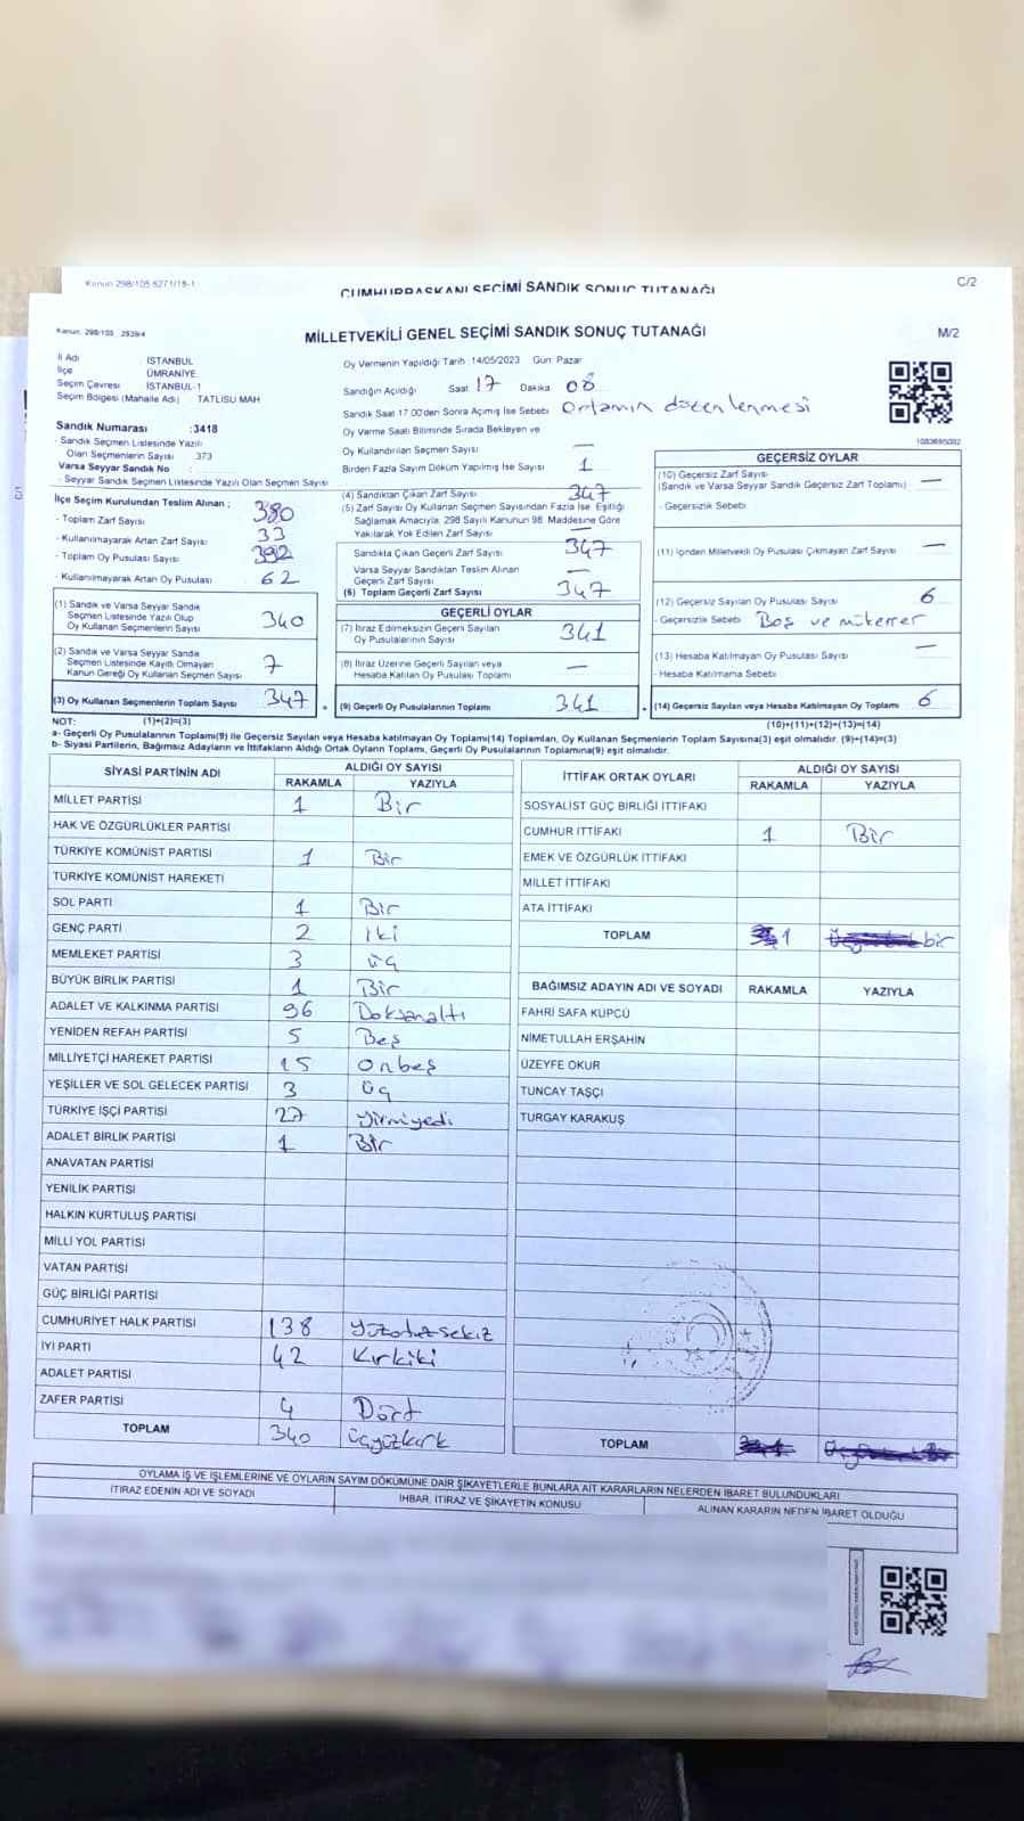 Kanun 298/105 6271/18-1
CUMHURBAŞKANI SEÇİMİ SANDIK SONUÇ TUTANAĞI
C/2
Kanun: 298/105 2839/4
MİLLETVEKİLİ GENEL SEÇİMİ SANDIK SONUÇ TUTANAĞI
M/2
İl Adı İSTANBUL
İlçe ÜMRANİYE
Seçim Çevresi İSTANBUL-1
Seçim Bölgesi (Mahalle Adı) TATLISU MAH
Sandık Numarası :3418
- Sandık Seçmen Listesinde Yazılı
Olan Seçmenlerin Sayısı 373
Varsa Seyyar Sandık No :
- Seyyar Sandık Seçmen Listesinde Yazılı Olan Seçmen Sayısı
Oy Vermenin Yapıldığı Tarih :14/05/2023 Gün: Pazar
Sandığın Açıldığı Saat 17 Dakika 08
Sandık Saat 17.00'den Sonra Açılmış İse Sebebi Ortamın düzenlenmesi
Oy Verme Saati Bitiminde Sırada Bekleyen ve
Oy Kullandırılan Seçmen Sayısı —
Birden Fazla Sayım Döküm Yapılmış İse Sayısı 1
İlçe Seçim Kurulundan Teslim Alınan ;
- Toplam Zarf Sayısı 380
- Kullanılmayarak Artan Zarf Sayısı 33
- Toplam Oy Pusulası Sayısı 392
- Kullanılmayarak Artan Oy Pusulası 62
(1) Sandık ve Varsa Seyyar Sandık
Seçmen Listesinde Yazılı Olup
Oy Kullanan Seçmenlerin Sayısı 340
(2) Sandık ve Varsa Seyyar Sandık
Seçmen Listesinde Kayıtlı Olmayan
Kanun Gereği Oy Kullanan Seçmen Sayısı 7
(3) Oy Kullanan Seçmenlerin Toplam Sayısı 347
(4) Sandıktan Çıkan Zarf Sayısı 347
(5) Zarf Sayısı Oy Kullanan Seçmen Sayısından Fazla İse, Eşitliği
Sağlamak Amacıyla, 298 Sayılı Kanunun 98. Maddesine Göre
Yakılarak Yok Edilen Zarf Sayısı —
Sandıkta Çıkan Geçerli Zarf Sayısı 347
Varsa Seyyar Sandıktan Teslim Alınan
Geçerli Zarf Sayısı —
(6) Toplam Geçerli Zarf Sayısı 347
GEÇERLİ OYLAR
(7) İtiraz Edilmeksizin Geçerli Sayılan
Oy Pusulalarının Sayısı 341
(8) İtiraz Üzerine Geçerli Sayılan veya
Hesaba Katılan Oy Pusulası Toplamı —
(9) Geçerli Oy Pusulalarının Toplamı 341
1083695082
GEÇERSİZ OYLAR
(10) Geçersiz Zarf Sayısı —
(Sandık ve Varsa Seyyar Sandık Geçersiz Zarf Toplamı)
- Geçersizlik Sebebi
(11) İçinden Milletvekili Oy Pusulası Çıkmayan Zarf Sayısı —
(12) Geçersiz Sayılan Oy Pusulası Sayısı 6
- Geçersizlik Sebebi Boş ve mükerrer
(13) Hesaba Katılmayan Oy Pusulası Sayısı —
- Hesaba Katılmama Sebebi
(14) Geçersiz Sayılan veya Hesaba Katılmayan Oy Toplamı 6
NOT: (1)+(2)=(3)
(10)+(11)+(12)+(13)=(14)
a- Geçerli Oy Pusulalarının Toplamı(9) ile Geçersiz Sayılan veya Hesaba katılmayan Oy Toplamı(14) Toplamları, Oy Kullanan Seçmenlerin Toplam Sayısına(3) eşit olmalıdır. (9)+(14)=(3)
b- Siyasi Partilerin, Bağımsız Adayların ve İttifakların Aldığı Ortak Oyların Toplamı, Geçerli Oy Pusulalarının Toplamına(9) eşit olmalıdır.
SİYASİ PARTİNİN ADI ALDIĞI OY SAYISI
RAKAMLA YAZIYLA
MİLLET PARTİSİ 1 Bir
HAK VE ÖZGÜRLÜKLER PARTİSİ
TÜRKİYE KOMÜNİST PARTİSİ 1 Bir
TÜRKİYE KOMÜNİST HAREKETİ
SOL PARTİ 1 Bir
GENÇ PARTİ 2 iki
MEMLEKET PARTİSİ 3 üç
BÜYÜK BİRLİK PARTİSİ 1 Bir
ADALET VE KALKINMA PARTİSİ 96 Doksanaltı
YENİDEN REFAH PARTİSİ 5 Beş
MİLLİYETÇİ HAREKET PARTİSİ 15 onbeş
YEŞİLLER VE SOL GELECEK PARTİSİ 3 üç
TÜRKİYE İŞÇİ PARTİSİ 27 yirmiyedi
ADALET BİRLİK PARTİSİ 1 Bir
ANAVATAN PARTİSİ
YENİLİK PARTİSİ
HALKIN KURTULUŞ PARTİSİ
MİLLİ YOL PARTİSİ
VATAN PARTİSİ
GÜÇ BİRLİĞİ PARTİSİ
CUMHURİYET HALK PARTİSİ 138 yüzotuzsekiz
İYİ PARTİ 42 Kırkiki
ADALET PARTİSİ
ZAFER PARTİSİ 4 Dört
TOPLAM 340 üçyüzkırk
İTTİFAK ORTAK OYLARI ALDIĞI OY SAYISI
RAKAMLA YAZIYLA
SOSYALİST GÜÇ BİRLİĞİ İTTİFAKI
CUMHUR İTTİFAKI 1 Bir
EMEK VE ÖZGÜRLÜK İTTİFAKI
MİLLET İTTİFAKI
ATA İTTİFAKI
TOPLAM 1 bir
BAĞIMSIZ ADAYIN ADI VE SOYADI RAKAMLA YAZIYLA
FAHRİ SAFA KÜPCÜ
NİMETULLAH ERŞAHİN
ÜZEYFE OKUR
TUNCAY TAŞÇI
TURGAY KARAKUŞ
TOPLAM
OYLAMA İŞ VE İŞLEMLERİNE VE OYLARIN SAYIM DÖKÜMÜNE DAİR ŞİKAYETLERLE BUNLARA AİT KARARLARIN NELERDEN İBARET BULUNDUKLARI
İTİRAZ EDENİN ADI VE SOYADI İHBAR, İTİRAZ VE ŞİKAYETİN KONUSU ALINAN KARARIN NEDEN İBARET OLDUĞU